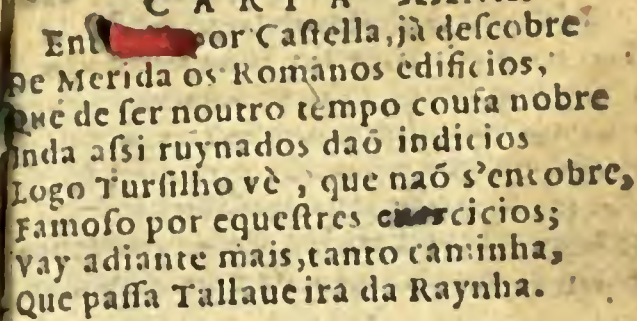 por Castella, jà descobre
De Merida os Romanos edificios,
Que de ser noutro tempo cousa nobre
Inda assi ruynados daõ indicios
Logo Tursilho vè, que naõ s'encobre,
Famoso por equestres exercicios;
Vay adiante mais, tanto caminha,
Que passa Tallaueira da Raynha.